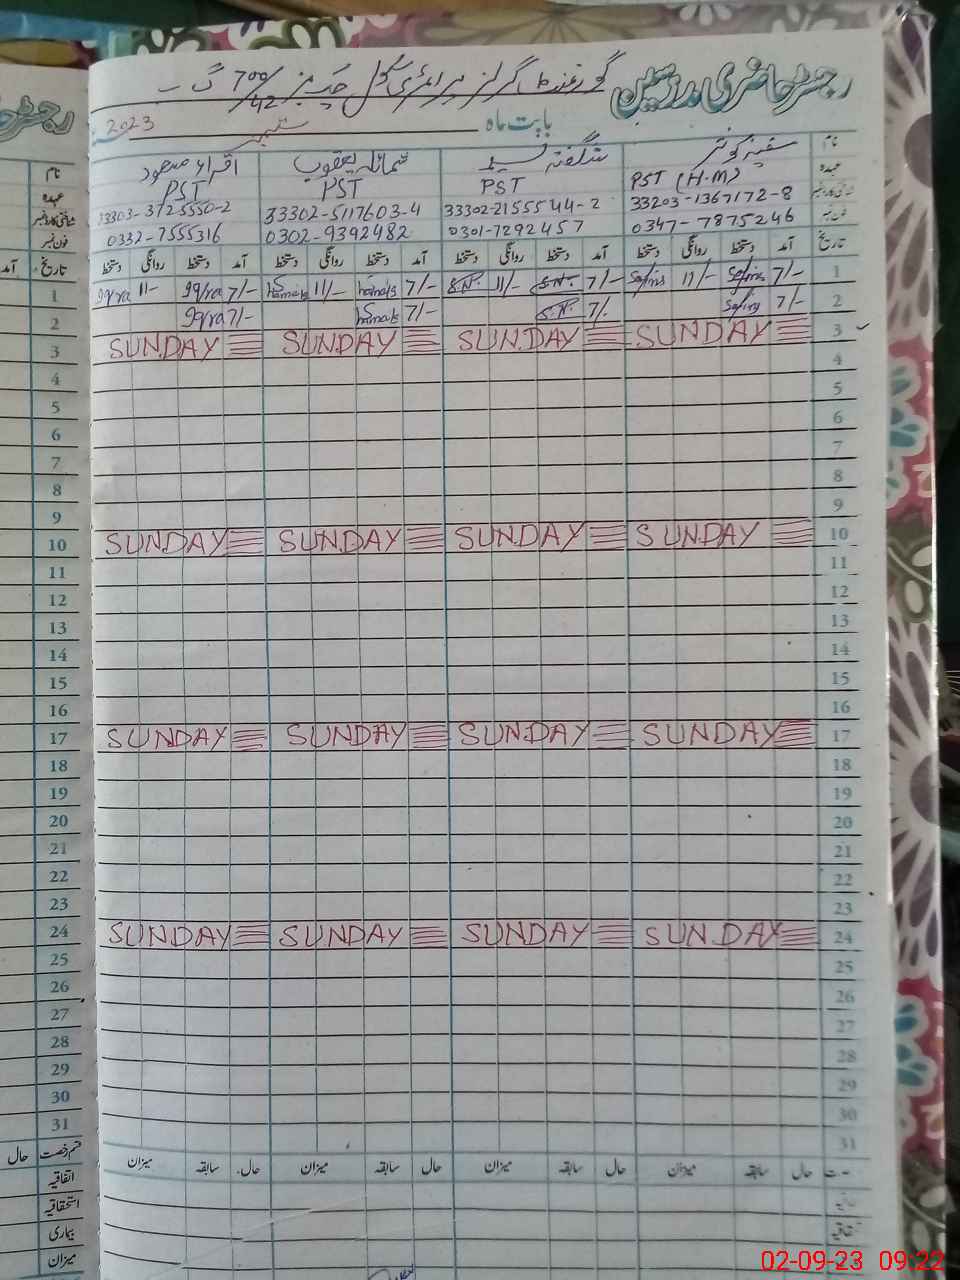 رجسٹر حاضری مدرسین
گورنمنٹ گرلز پرائمری سکول چک نمبر 700/42 گ ب
بابت ماہ ستمبر 2023
نام سفینہ کوثر شگفتہ نسیم شمائلہ یعقوب اقراء مسعود نام
عہدہ PST (H.M) PST PST PST عہدہ
شناختی کارڈ نمبر 33203-1367172-8 33302-2155544-2 33302-5117603-4 33303-3725550-2 شناختی کارڈ نمبر
فون نمبر 0347-7875246 0301-7292457 0302-9392482 0332-7555316 فون نمبر
تاریخ آمد دستخط روانگی دستخط آمد دستخط روانگی دستخط آمد دستخط روانگی دستخط آمد دستخط روانگی دستخط تاریخ آمد
1 7/- 11/- 7/- S.N. 11/- S.N. 7/- 11/- 7/- Iqra 11- Iqra 1
2 7/- 7/. S.N. 7/- 7/- Iqra 2
3 SUNDAY SUNDAY SUNDAY SUNDAY 3
4 4
5 5
6 6
7 7
8 8
9 9
10 SUNDAY SUNDAY SUNDAY SUNDAY 10
11 11
12 12
13 13
14 14
15 15
16 16
17 SUNDAY SUNDAY SUNDAY SUNDAY 17
18 18
19 19
20 20
21 21
22 22
23 23
24 SUNDAY SUNDAY SUNDAY SUNDAY 24
25 25
26 26
27 27
28 28
29 29
30 30
31 31
حال سابقہ میزان حال سابقہ میزان حال سابقہ میزان حال سابقہ میزان قسم رخصت حال
اتفاقیہ
استحقاقیہ
بیماری
میزان
02-09-23 09:22